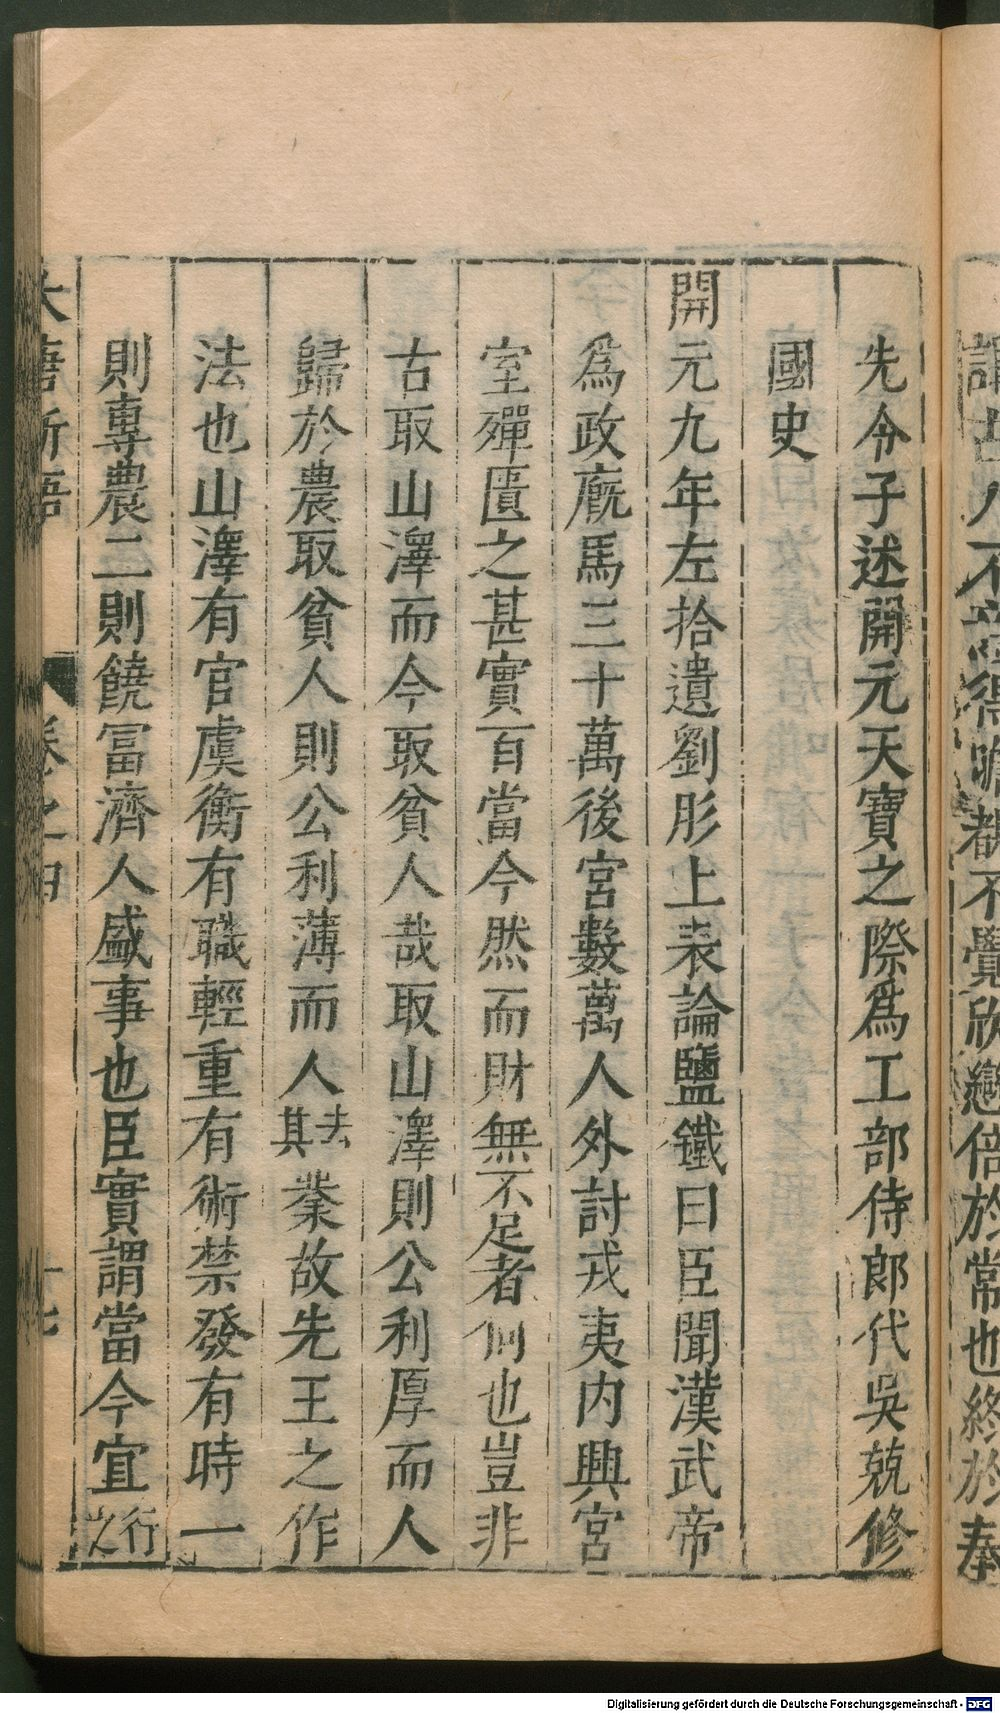 先令子述開元天寶之際爲工部侍郎代吳兢修
國史
開元九年左拾遺劉彤上表論鹽鐵曰臣聞漢武帝
爲政廐馬三十萬後宮數萬人外討戎夷内興宮
室殫匱之甚實百當今然而財無不足者何也豈非
古取山澤而今取貧人哉取山澤則公利厚而人
歸於農取貧人則公利薄而人去其業故先王之作
法也山澤有官虞衡有職輕重有術禁發有時一
則專農二則饒冨濟人盛事也臣實謂當今宜行之
大唐新語
卷之四
十七
Digitalisierung gefördert durch die Deutsche Forschungsgemeinschaft - DFG